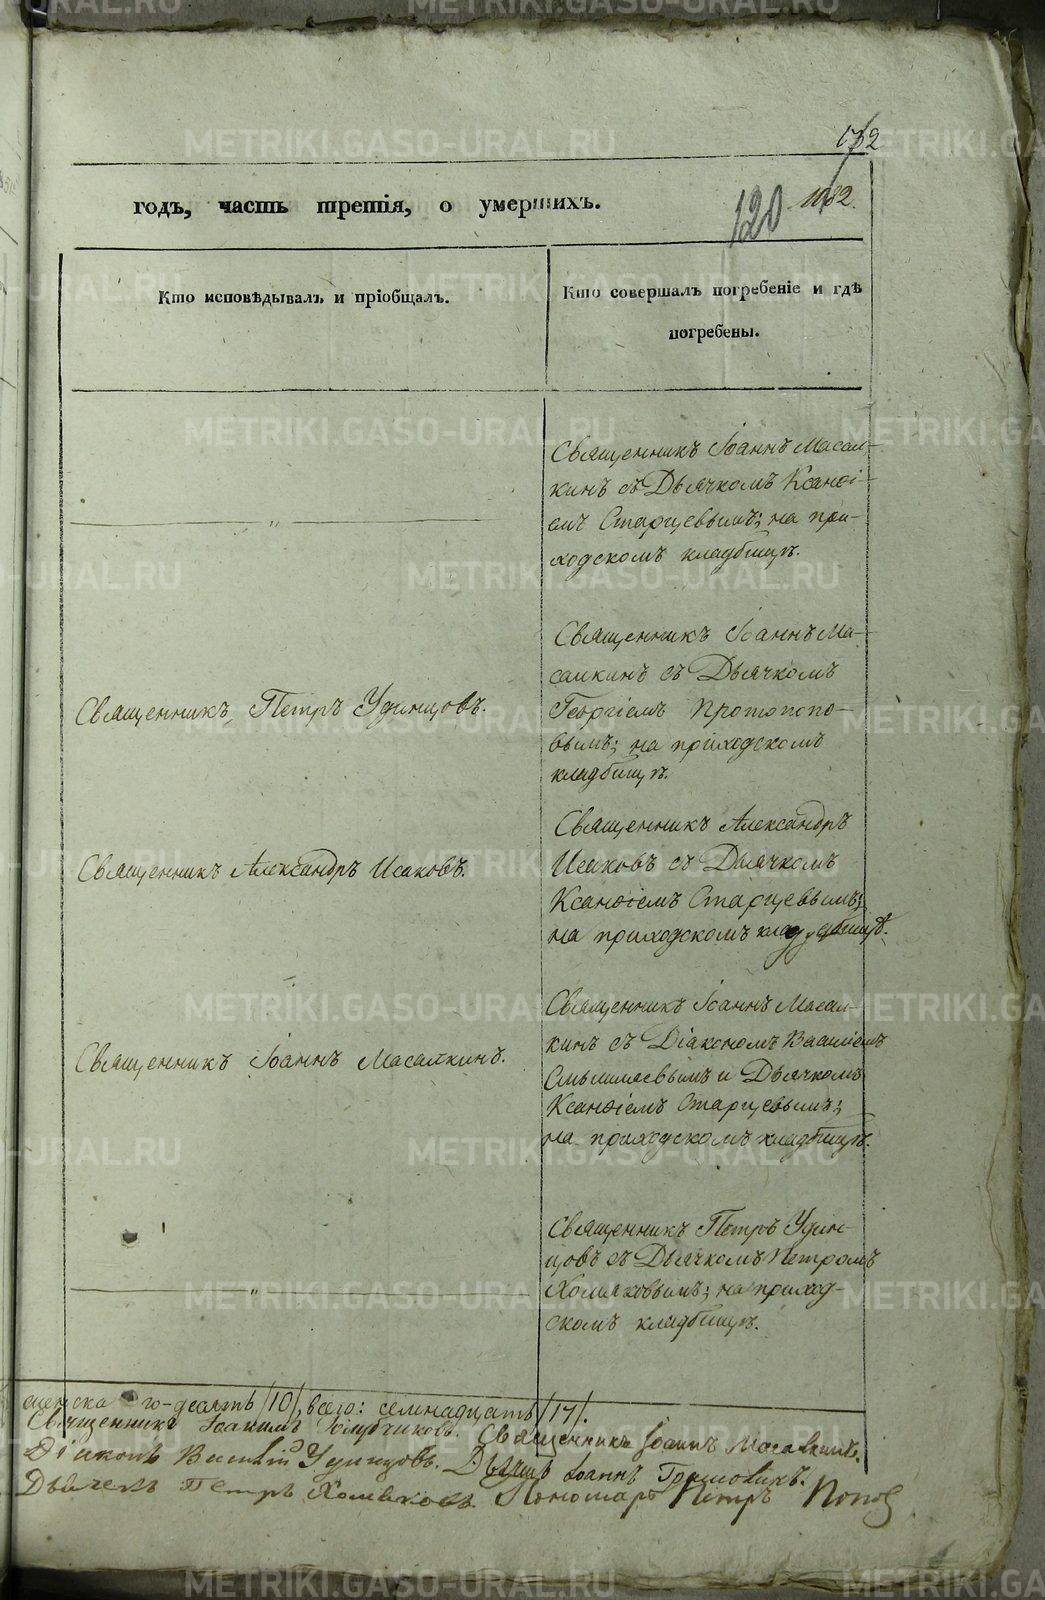 132
годъ, часть третія, о умершихъ.
120
1082.
Кто исповѣдывалъ и пріобщалъ.
Кто совершалъ погребеніе и гдѣ
погребены.
Священникъ Іоаннъ Масал-
кинъ съ Дьячкомъ Ксанѳі-
емъ Старцевымъ; на при-
ходскомъ кладбищѣ.
"
Священникъ Петръ Удинцовъ.
Священникъ Іоаннъ Ма-
салкинъ съ Дьячкомъ
Георгіемъ Протопопо-
вымъ; на приходскомъ
кладбищѣ.
Священникъ Александръ Исаковъ.
Священникъ Александръ
Исаковъ съ Дьячкомъ
Ксанѳіемъ Старцевымъ;
на приходскомъ кладбищѣ.
Священникъ Іоаннъ Масалкинъ.
Священникъ Іоаннъ Масал-
кинъ съ Діакономъ Василіемъ
и Дьячкомъ
Ксанѳіемъ Старцевымъ;
на приходскомъ кладбищѣ.
"
Священникъ Петръ Удин-
цовъ съ Дьячкомъ Петромъ
Хомяковымъ; на приход-
скомъ кладбищѣ.
женска го-десять /10/, всего: семнадцать /17/.
Священникъ Іоакимъ Голубчиковъ. Священникъ Іоаннъ Масалкинъ.
Діаконъ Василій Удинцовъ. Дьячекъ Іоаннъ
Дьячекъ Петръ Хомяковъ. Пономарь Петръ Попов
METRIKI.GASO-URAL.RU